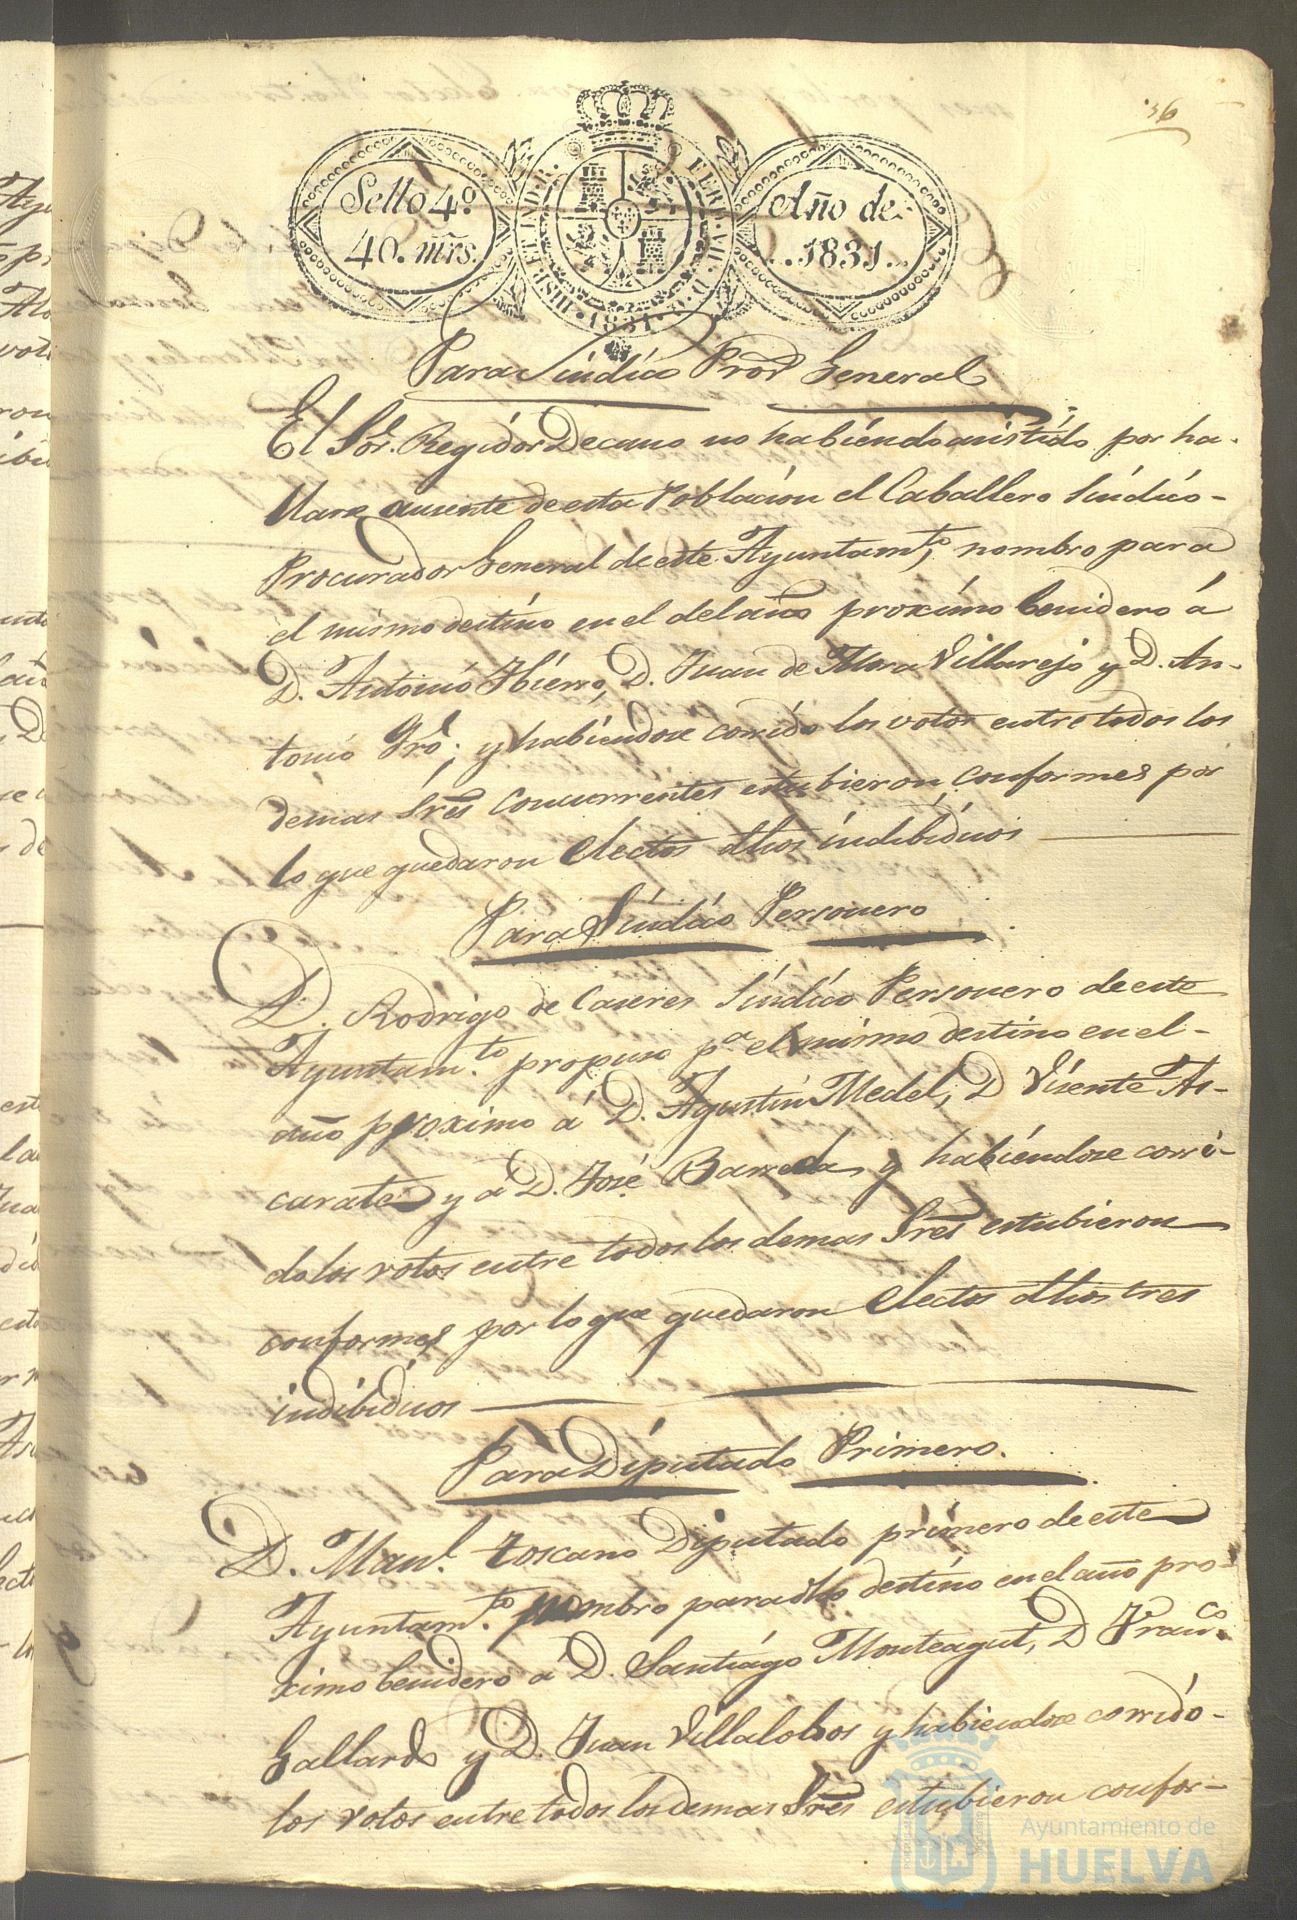 36
Sello 4º
40. mrs.
HISP. ET IND. R. FERD. VII. D. G. 1831.
Año de
1831
Para Sindico Pror General
El Sor. Regidor Decano no habiendo asistido por ha-
llarse ausente de esta Poblacion el Caballero Sindico-
Procurador General de este Ayuntamto, nombro para
el mismo destino en el del año proximo benidero á
D. Antonio Hierro, D. Juan de Mora Villarejo y D. An-
tonio ; y habiendose corrido los votos entre todos los
demas Sres concurrentes estubieron conformes por
lo que quedaron electos dhos indibiduos
Para Sindico Personero
D. Rodrigo de Caseres Sindico Personero de este
Ayuntamto. propuso pa el mismo destino en el-
año proximo á D. Agustin Medel, D Visente As-
carate y a D. José Barreda, y habiendose corri-
do los votos entre todos los demas Sres estubieron
conformes por lo que quedaron electos dhos tres
indibiduos
Para Diputado Primero.
D. Manl. Toscano Diputado primero de este
Ayuntamto. nombro para dho destino en el año pro-
ximo benidero a D. Santiago Monteagut, D Franco.
Gallardo y D. Juan Villalobos y habiendose corrido-
los votos entre todos los demas Sres estubieron confor-
Ayuntamiento de
HUELVA